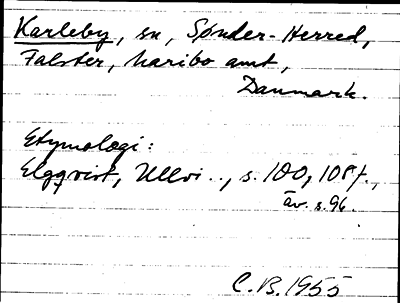 Karleby, sn, Sønder-Herred,
Falster, Maribo amt,
Danmark.
Etymologi:
Elgqvist, Ullvi.., s. 100, 108f.,
äv. s. 96.
C.B. 1955